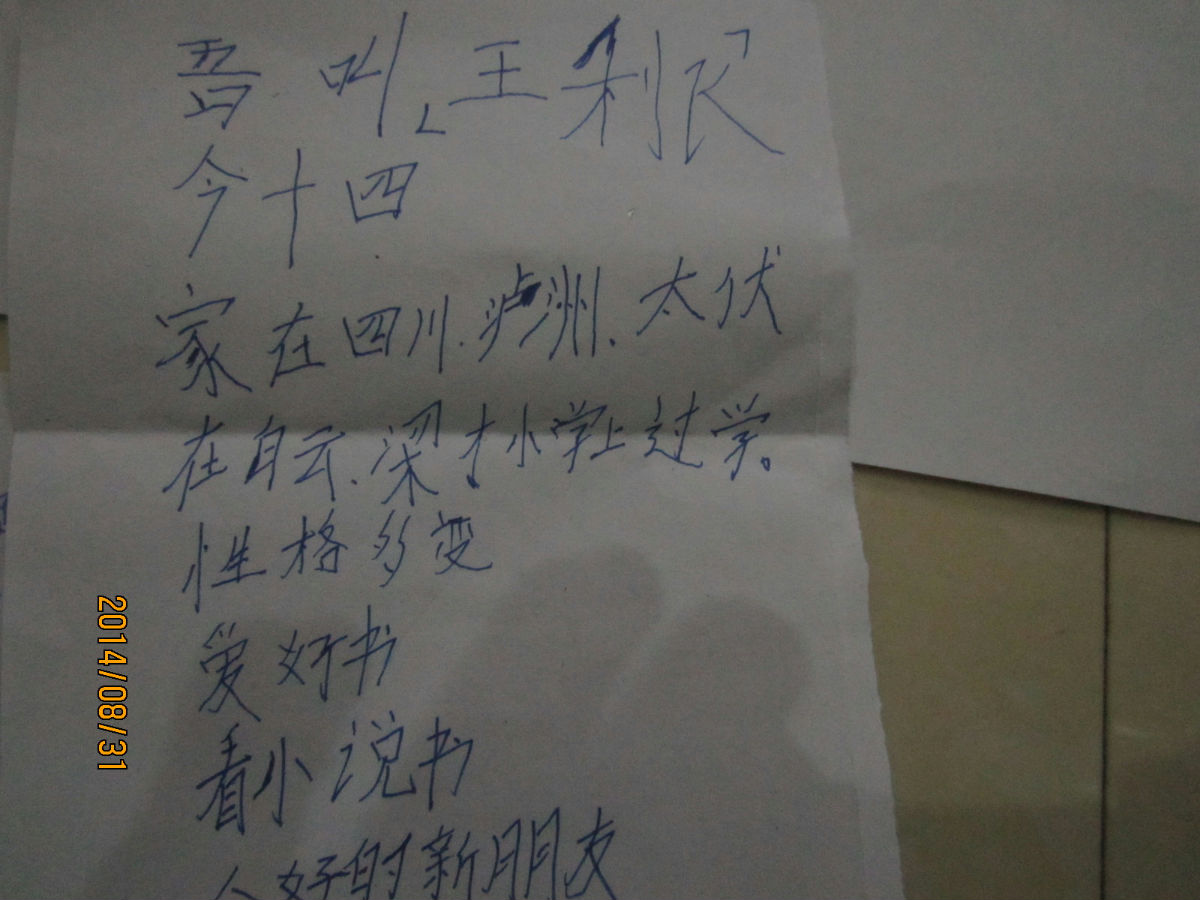 吾叫「王利民」
今十四
家在四川.泸洲.太伏
在白云.梁才小学上过学。
性格多变
爱好书
看小说书
好的新朋友
2014/08/31